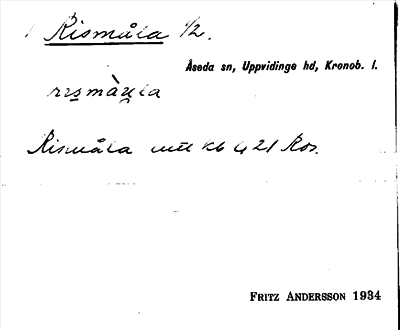 Rismåla 1/2.
Åseda sn, Uppvidinge hd, Kronob. l.
Rismåla mtl kb 4 21 Ros.
FRITZ ANDERSSON 1934